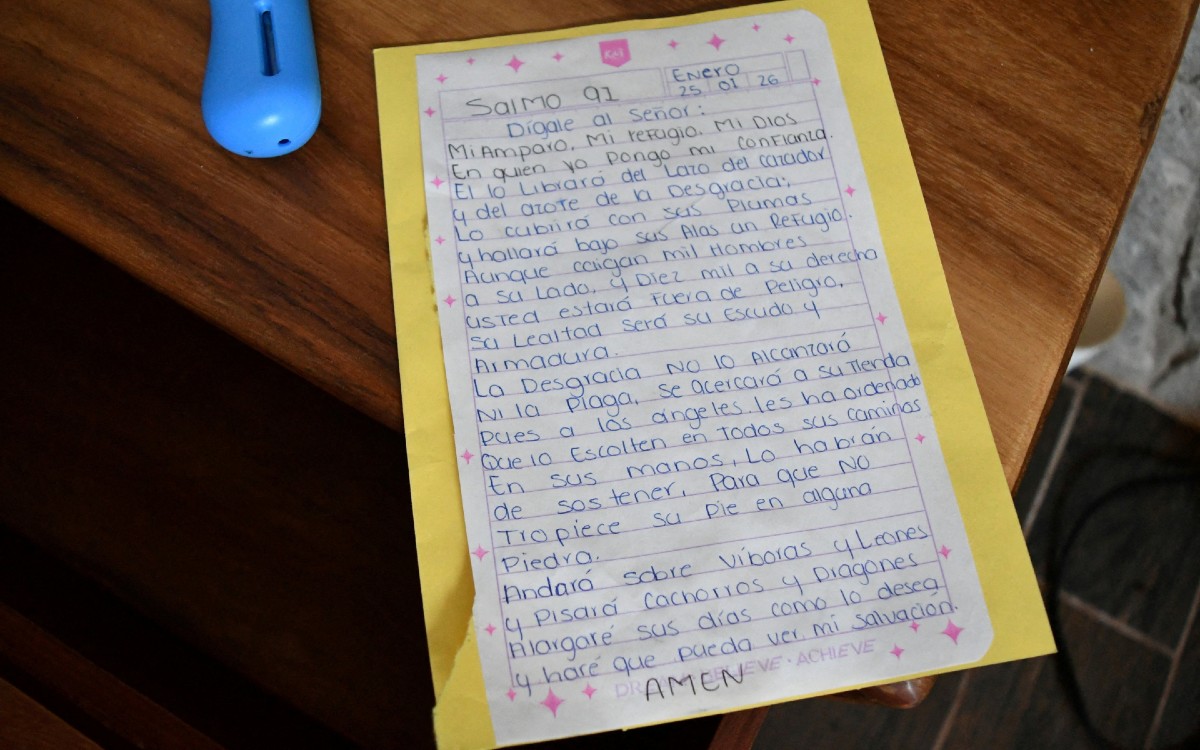 K&J
Salmo 91
Enero
25 01 26
Dígale al Señor:
Mi Amparo, Mi refugio. Mi Dios
En quien yo pongo mi confianza.
El lo Librará del Lazo del cazador
y del azote de la Desgracia;
Lo cubrirá con sus Plumas
y hallará bajo sus Alas un Refugio.
Aunque caigan mil Hombres
a su Lado, y Diez mil a su derecha
usted estará Fuera de Peligro,
su Lealtad será su Escudo y
Armadura.
La Desgracia No lo Alcanzará
Ni la Plaga, se acercará a su Tienda
pues a los ángeles, les ha ordenado
Que lo Escolten en Todos sus caminos
En sus manos, Lo habrán
de sostener, Para que NO
Tropiece su Pie en alguna
Piedra.
Andará sobre Víboras y Leones
y Pisará cachorros y Dragones
Alargaré sus días como lo desea
y haré que pueda ver mi salvación.
BELIEVE · ACHIEVE
AMEN